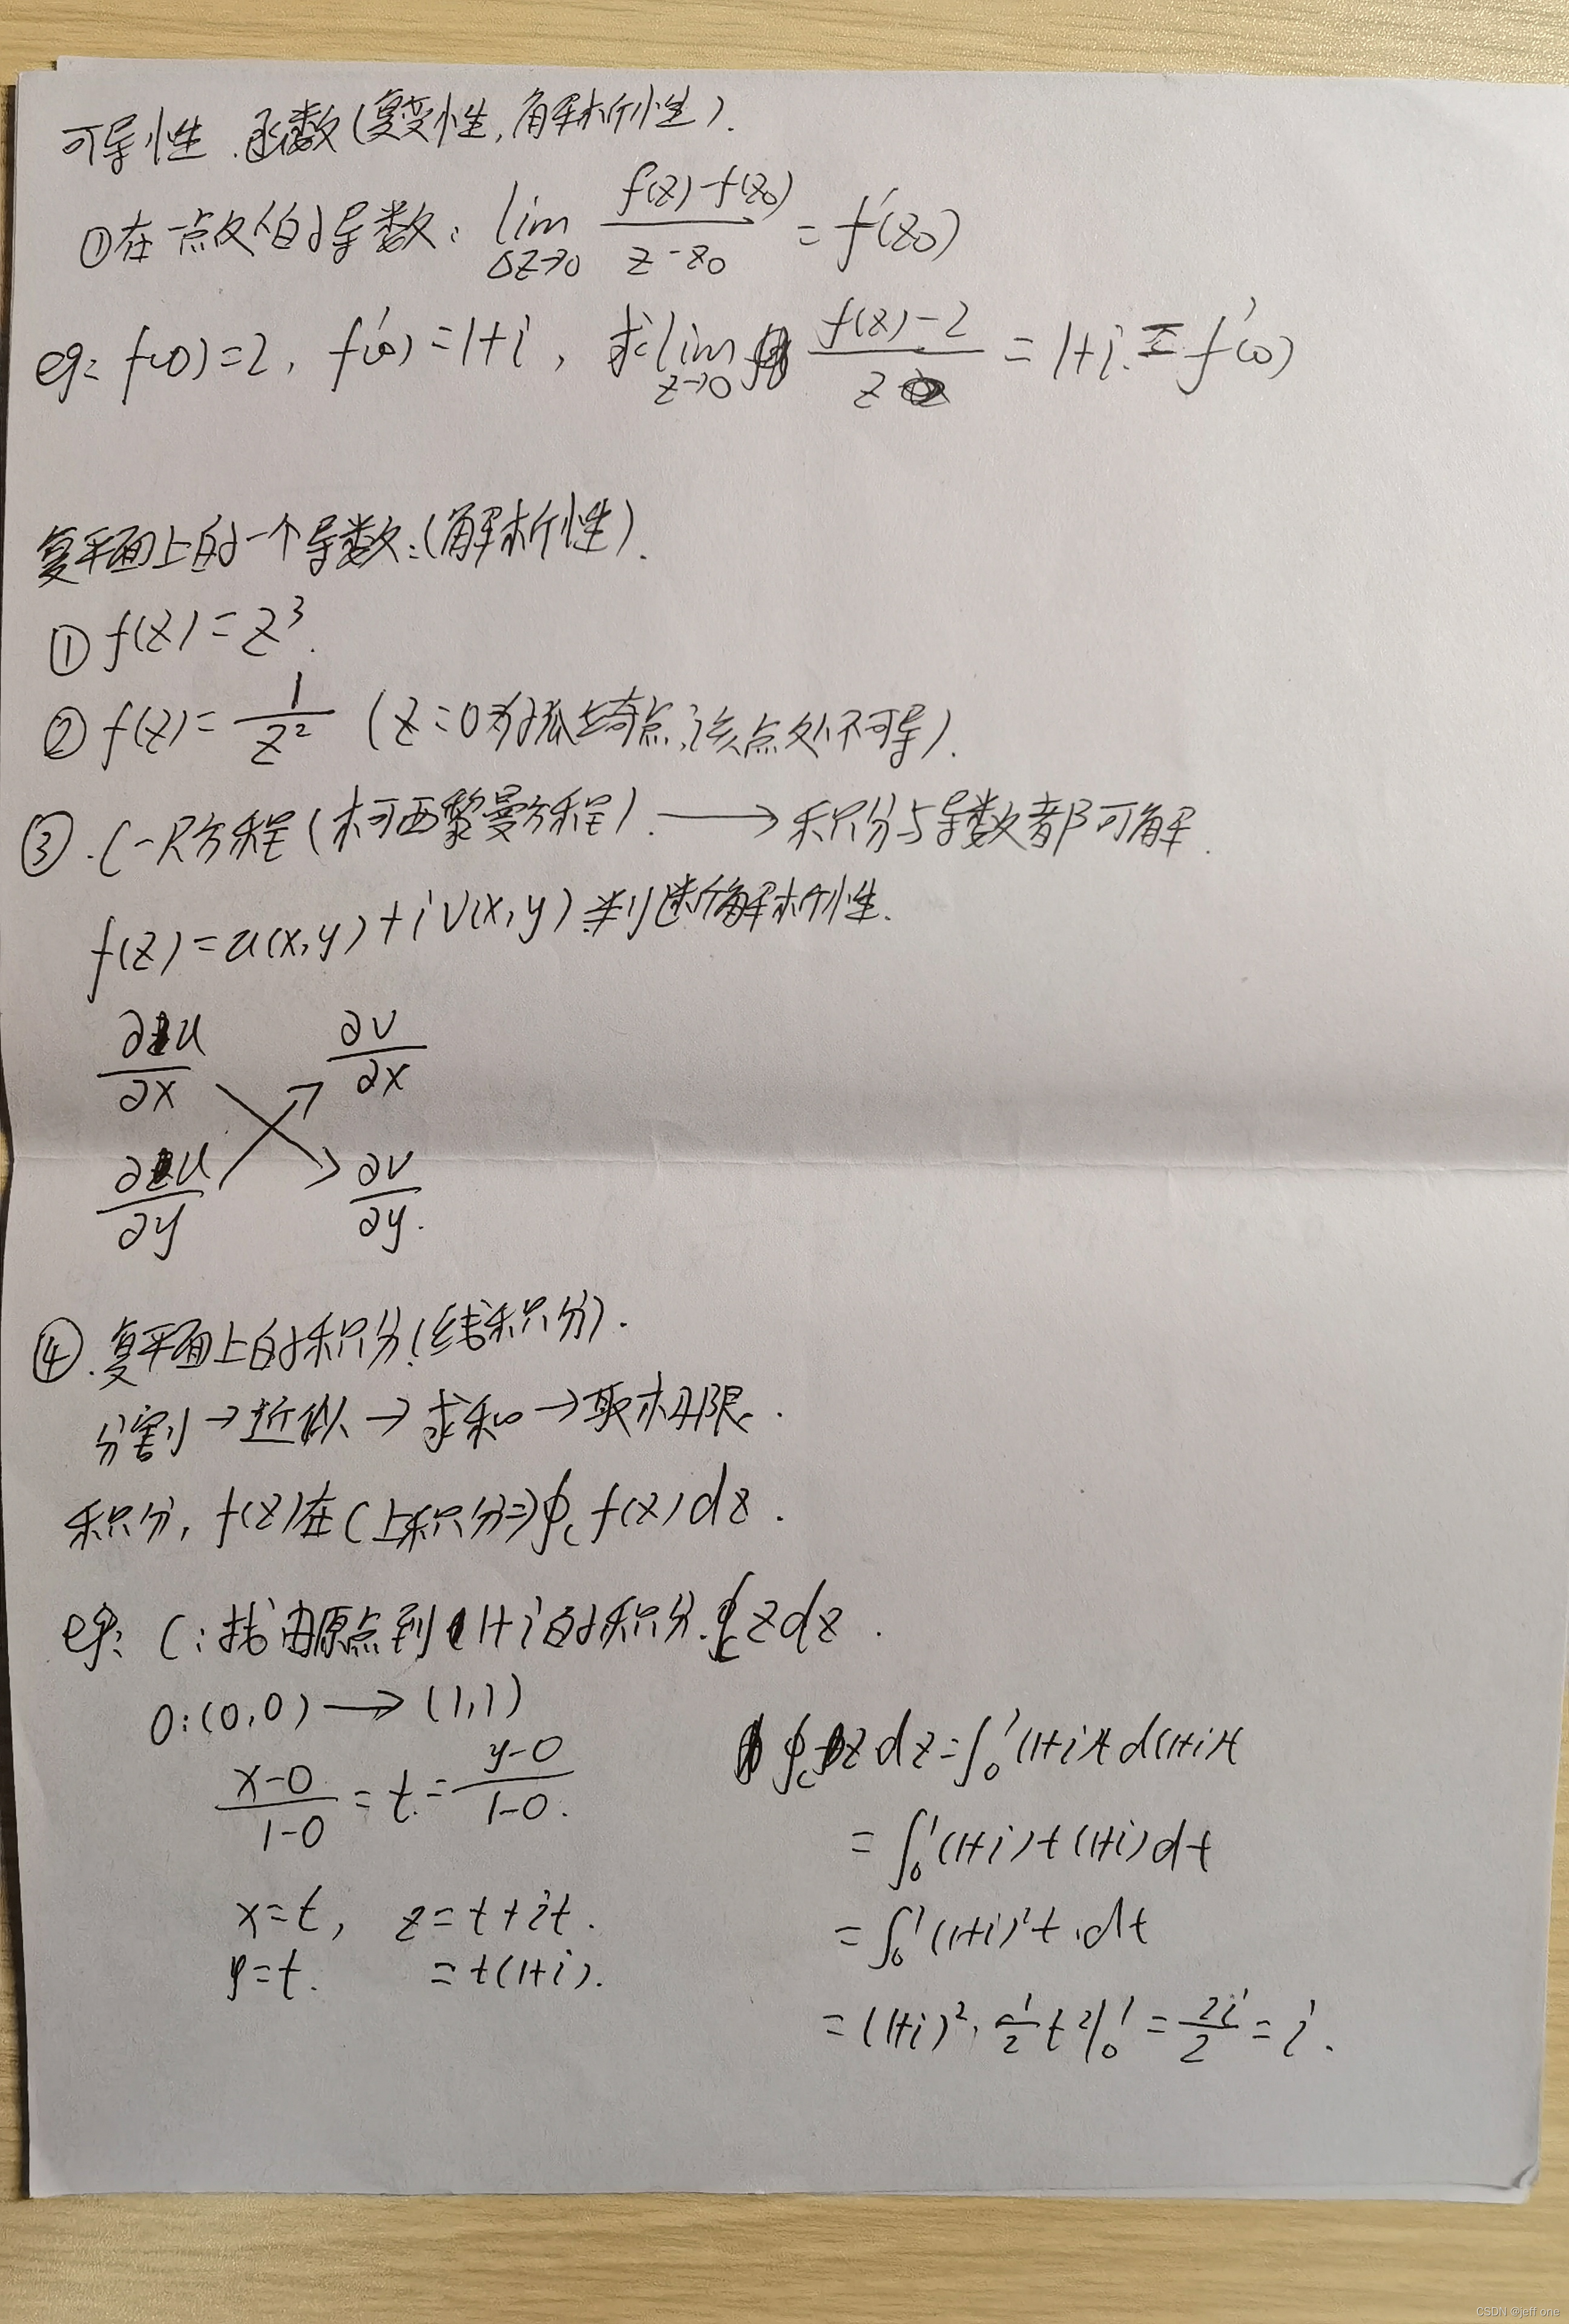 可导性.函数(复变性,解析性).
①在一点处的导数: lim Δz→0 (f(z)-f(z₀))/(z-z₀) = f'(z₀)
eg: f(0)=2, f'(0)=1+i, 求 lim z→0 (f(z)-2)/z = 1+i = f'(0)
复平面上的一个导数:(解析性).
① f(z)=z³.
② f(z)=1/z² (z=0为孤立奇点,该点处不可导).
③.C-R方程(柯西黎曼方程).→积分与导数都可解.
f(z)=u(x,y)+iv(x,y)判断解析性.
∂u/∂x ∂v/∂x
∂u/∂y ∂v/∂y.
④.复平面上的积分(线积分).
分割→近似→求和→取极限.
积分,f(z)在C上积分⇒∮c f(z)dz.
eg: C:求由原点到1+i的积分.∮c zdz.
O:(0,0)→(1,1)
(x-0)/(1-0)=t=(y-0)/(1-0).
x=t, z=t+it.
y=t. =t(1+i).
∮c z dz=∫₀¹(1+i)t d(1+i)t
=∫₀¹(1+i)t(1+i)dt
=∫₀¹(1+i)²t.dt
=(1+i)²·½t²|₀¹=2i/2=i.
CSDN @jeff one